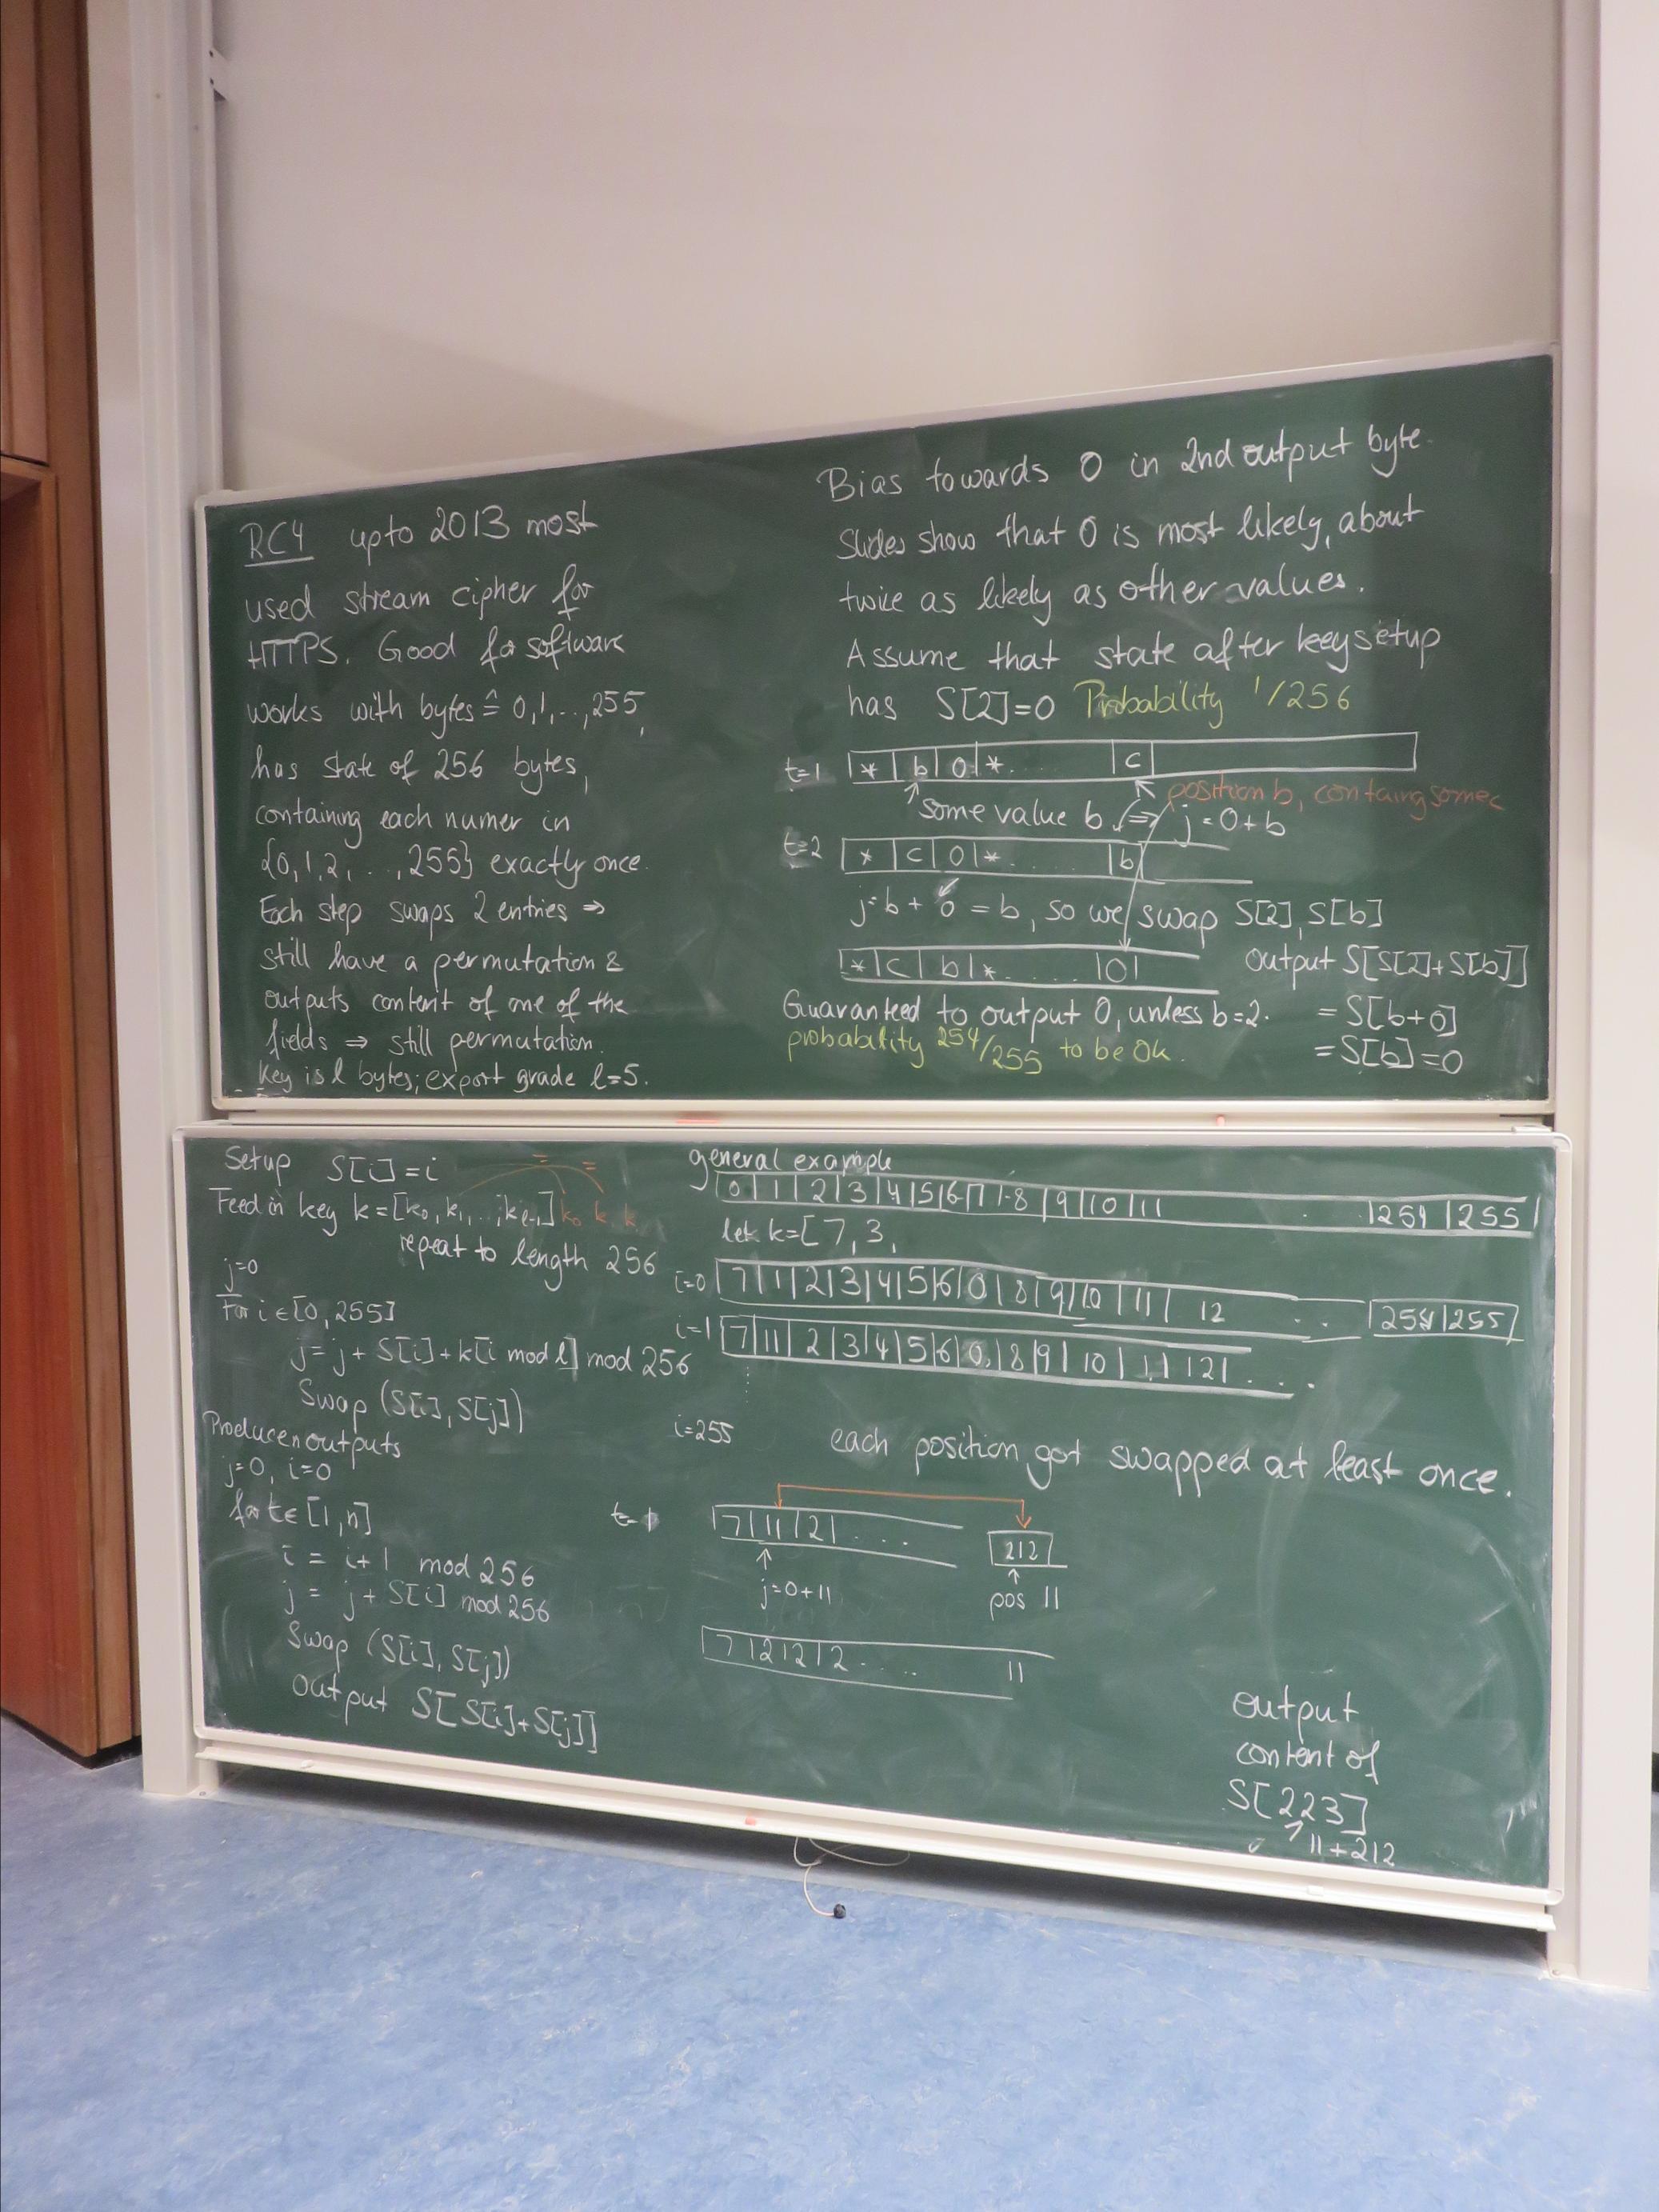 RC4 upto 2013 most
used stream cipher for
HTTPS. Good for software
works with bytes ≙ 0,1,..,255,
has state of 256 bytes,
containing each numer in
{0,1,2,...,255} exactly once.
Each step swaps 2 entries ⇒
still have a permutation &
outputs content of one of the
fields ⇒ still permutation.
Key is l bytes; export grade l=5.
Bias towards 0 in 2nd output byte.
Slides show that 0 is most likely, about
twice as likely as other values.
Assume that state after key setup
has S[2]=0 Probability 1/256
t=1 |*|b|0|*.... |c|
position b, containg some c
some value b ⇒ j=0+b
t=2 |*|c|0|*.... |b|
j=b+0=b, so we swap S[2], S[b]
|*|c|b|*..... |0|
output S[S[2]+S[b]]
= S[b+0]
= S[b]=0
Guaranteed to output 0, unless b=2.
probability 254/255 to be Ok.
Setup S[i]=i
Feed in key k=[k0,k1,..,kl-1] k0 k k
repeat to length 256
j=0
For i∈[0,255]
j=j+S[i]+k[i mod l] mod 256
Swap (S[i],S[j])
Produce n outputs
j=0, i=0
for t∈[1,n]
i = i+1 mod 256
j = j+S[i] mod 256
Swap (S[i],S[j])
output S[S[i]+S[j]]
general example
|0|1|2|3|4|5|6|7|8|9|10|11 . . |254|255|
let k=[7,3,
i=0 |7|1|2|3|4|5|6|0|8|9|10|11| 12 .. |254|255|
i=1 |7|11|2|3|4|5|6|0|8|9|10|1|12|...
i=255 each position got swapped at least once.
t=1 |7|11|2|.... |212|
j=0+11
pos 11
|7|212|2.... 11
output
content of
S[223]
11+212